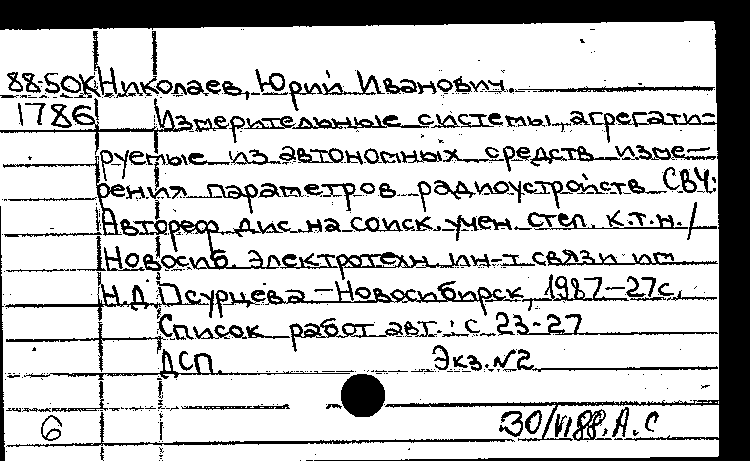 88-50К Николаев, Юрий Иванович.
1786 Измерительные системы, агрегати-
руемые из автономных средств изме-
рения параметров радиоустройств СВЧ:
Автореф. дис на соиск. учен. степ. к.т.н./
Новосиб. электротехн. ин-т связи им
Н.Д. Псурцева. - Новосибирск, 1987-27с.
Список работ авт.: с 23-27
ДСП. Экз.N2
6 30/VI88. А.С